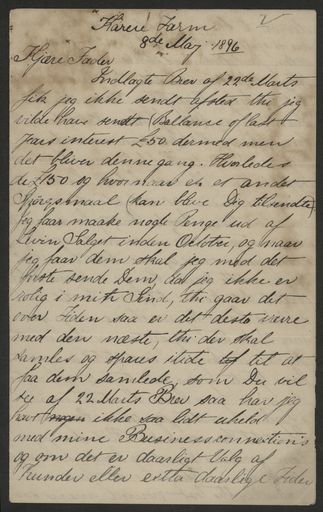 "Karere Farm"
8de Maj 1896
Kjære Fader
Indlagte Brev af 22de Marts
fik jeg ikke sendt afsted thi jeg
vilde have sendt Ballance of last
years interest £50 dermed men
det bliver denne gang. Hvorledes
de £150 og hvor naar er et andet
Spørgsmaal (kan blive Dig tilsendte)
jeg faar maaske nogle Penge ud af
Levin Salget inden October, og naar
jeg faar dem skal jeg med det
første sende Dem, da jeg ikke er
rolig i mit Sind, thi gaar det
over Tiden saa er det desto værre
med den næste, thi der skal
samles og spares itide til at
faa dem samlede, som Du vil
see af 22 Marts Brev saa har jeg
havt ikke saa lidt uheld
med mine Businessconnection's
og om det er daarligt Valg af
Kunder eller extra daarlige Tider